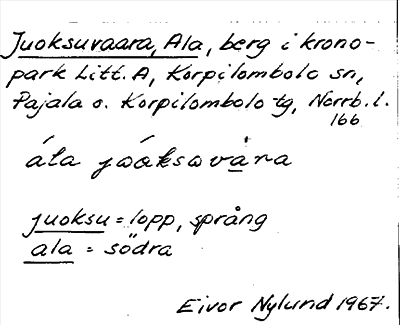 Juoksuvaara, Ala, berg i krono-
park Litt. A, Korpilombolo sn,
Pajala o. Korpilombolo tg, Norrb. l.
166
ála jóoksovàra
juoksu = lopp, språng
ala = södra
Eivor Nylund 1967.